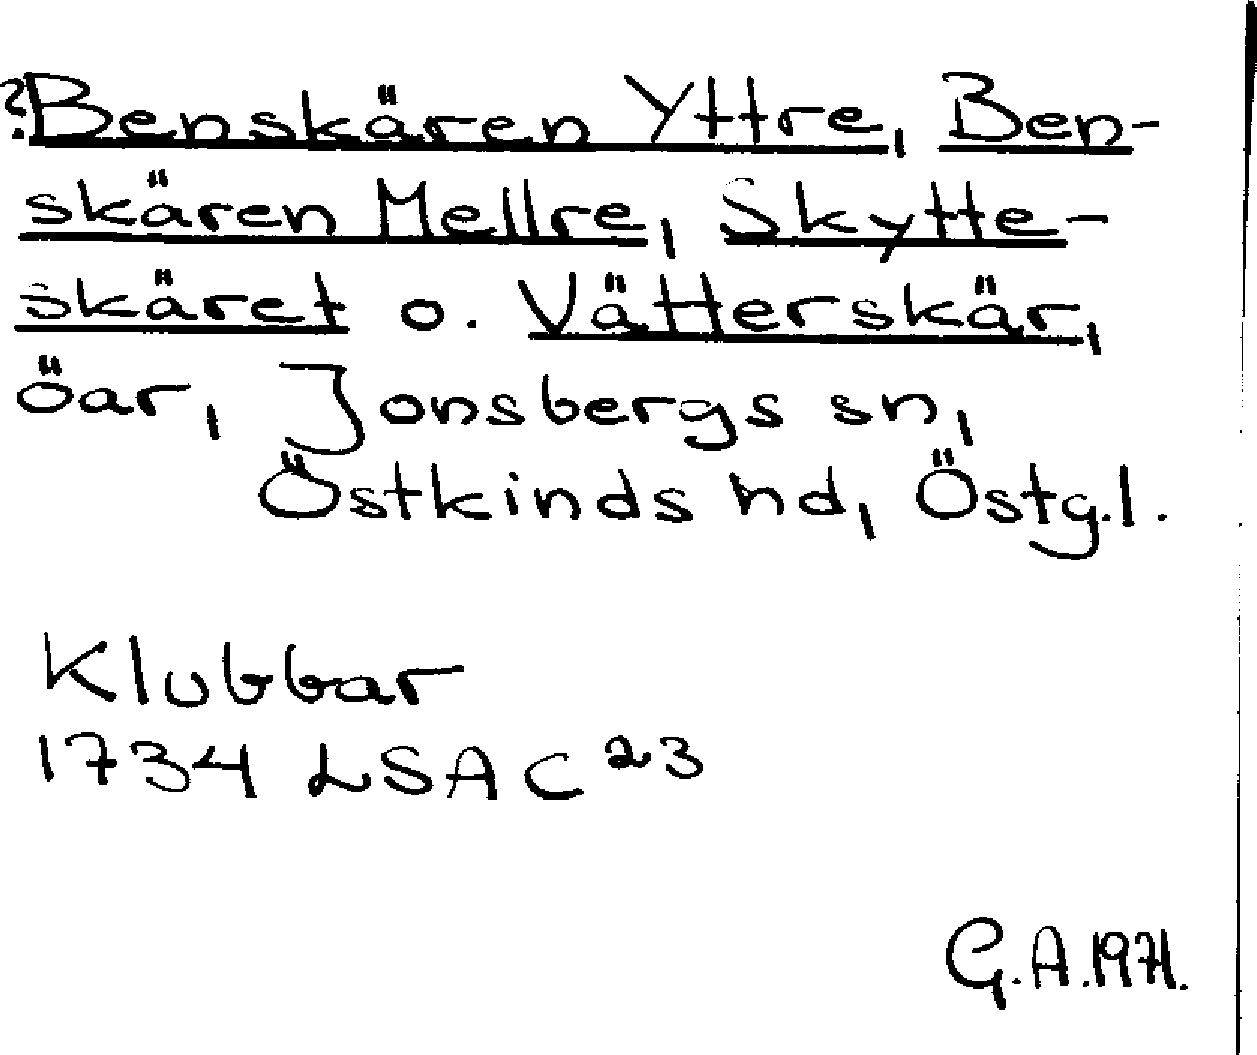 ?Benskären Yttre, Ben-
skären Mellre, Skytte-
skäret o. Vätterskär,
öar, Jonsbergs sn,
Östkinds hd, Östg.l.
Klubbar
1734 LSA C 23
G.A.1971.